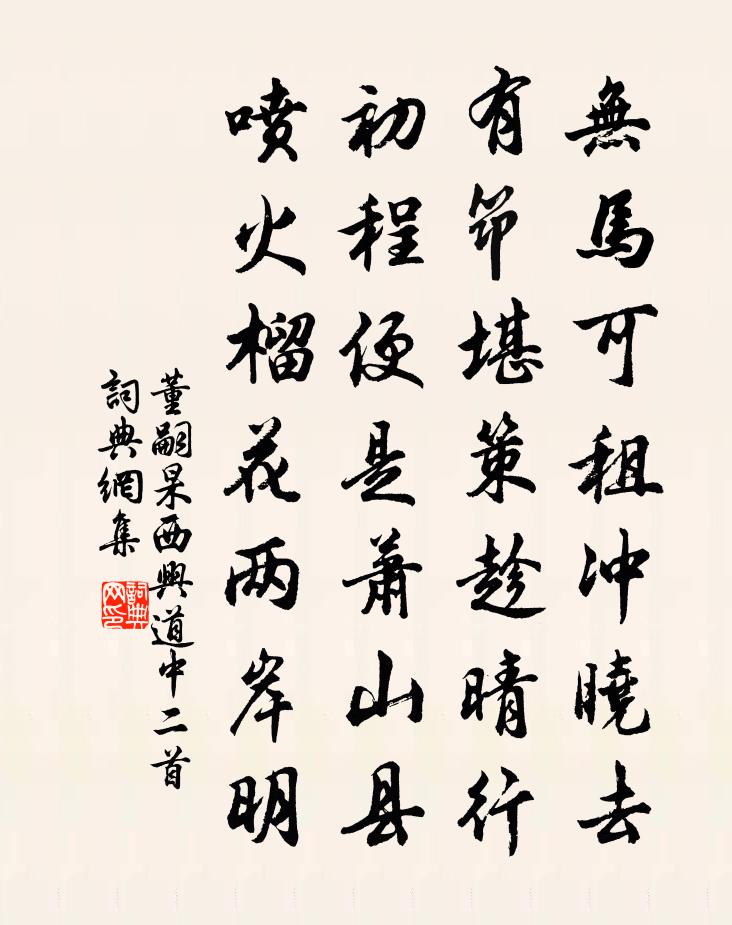 無馬可租冲曉去
有筇堪策趁晴行
初程便是萧山县
喷火榴花两岸明
董嗣杲西興道中二首
詞典網集
詞典网印